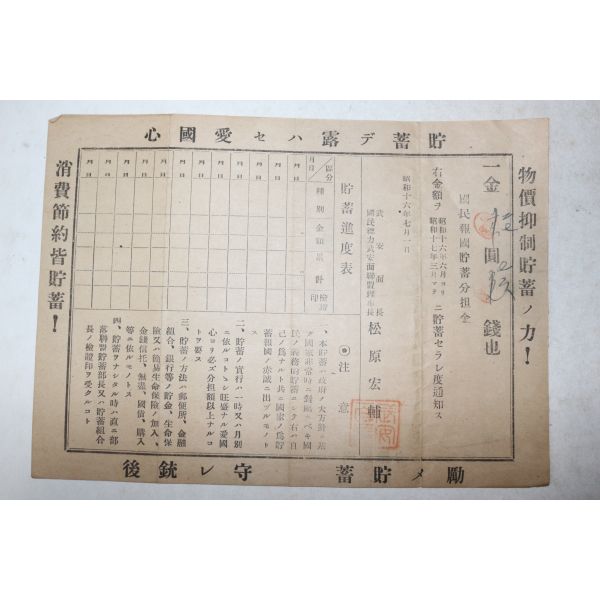 貯蓄デ露ハセ愛國心
物價抑制貯蓄ノ力!
一金
圓
錢也
國民報國貯蓄分担金
右金額ヲ
昭和十六年六月ヨリ
昭和十七年三月マデ
ニ貯蓄セラレ度通知ス
昭和十六年七月一日
武安面長
國民總力武安面聯盟理事長
松原宏輔
貯蓄進度表
區分
月日
種別
金額
累計
檢證印
月日
月日
月日
月日
月日
月日
月日
月日
月日
月日
◎注意
一、本貯蓄ハ政府ノ大方針ニ基
キ國家非常時ニ對處スベキ國
民ノ義務的貯蓄ニシテ右ハ自
己ノ爲ナルト共ニ國家ノ爲貯
蓄報國ノ赤誠ニ出ヅルモノト
ス
二、貯蓄ノ實行ハ一時又ハ月別
ニ依ルコトトシ旺盛ナル愛國
心ヨリ必ズ分担額以上ナルコ
トヲ要ス
三、貯蓄ノ方法ハ郵便所、金融
組合、銀行等ノ貯金、生命保
險又ハ簡易生命保險ノ加入、
金錢信託、無盡、國債ノ購入
等ニ依ルモノトス
四、貯蓄ヲナシタル時ハ直ニ部
落聯盟貯蓄部長又ハ貯蓄組合
長ノ檢證印ヲ受クルコト
消費節約皆貯蓄!
勵メ貯蓄 守レ銃後